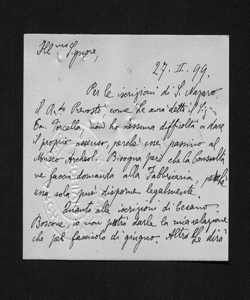 Ill.mo Signore,
27. II. 99.
Per le iscrizioni di S. Nazaro
il R.do Prevosto, come Le avrà detto il Sig.
En. Torcella, non ha nessuna difficoltà a dare
il proprio assenso, perchè esse passino al
Museo Archeol. Bisogna però che la Consulta
ne faccia domanda alla Fabbriceria, perchè
essa sola può disporre legalmente.
Quanto alle iscrizioni di Cesano
Boscone, io non potrò darle la mia relazione
che pel fascicolo di giugno. Altro Le dirò